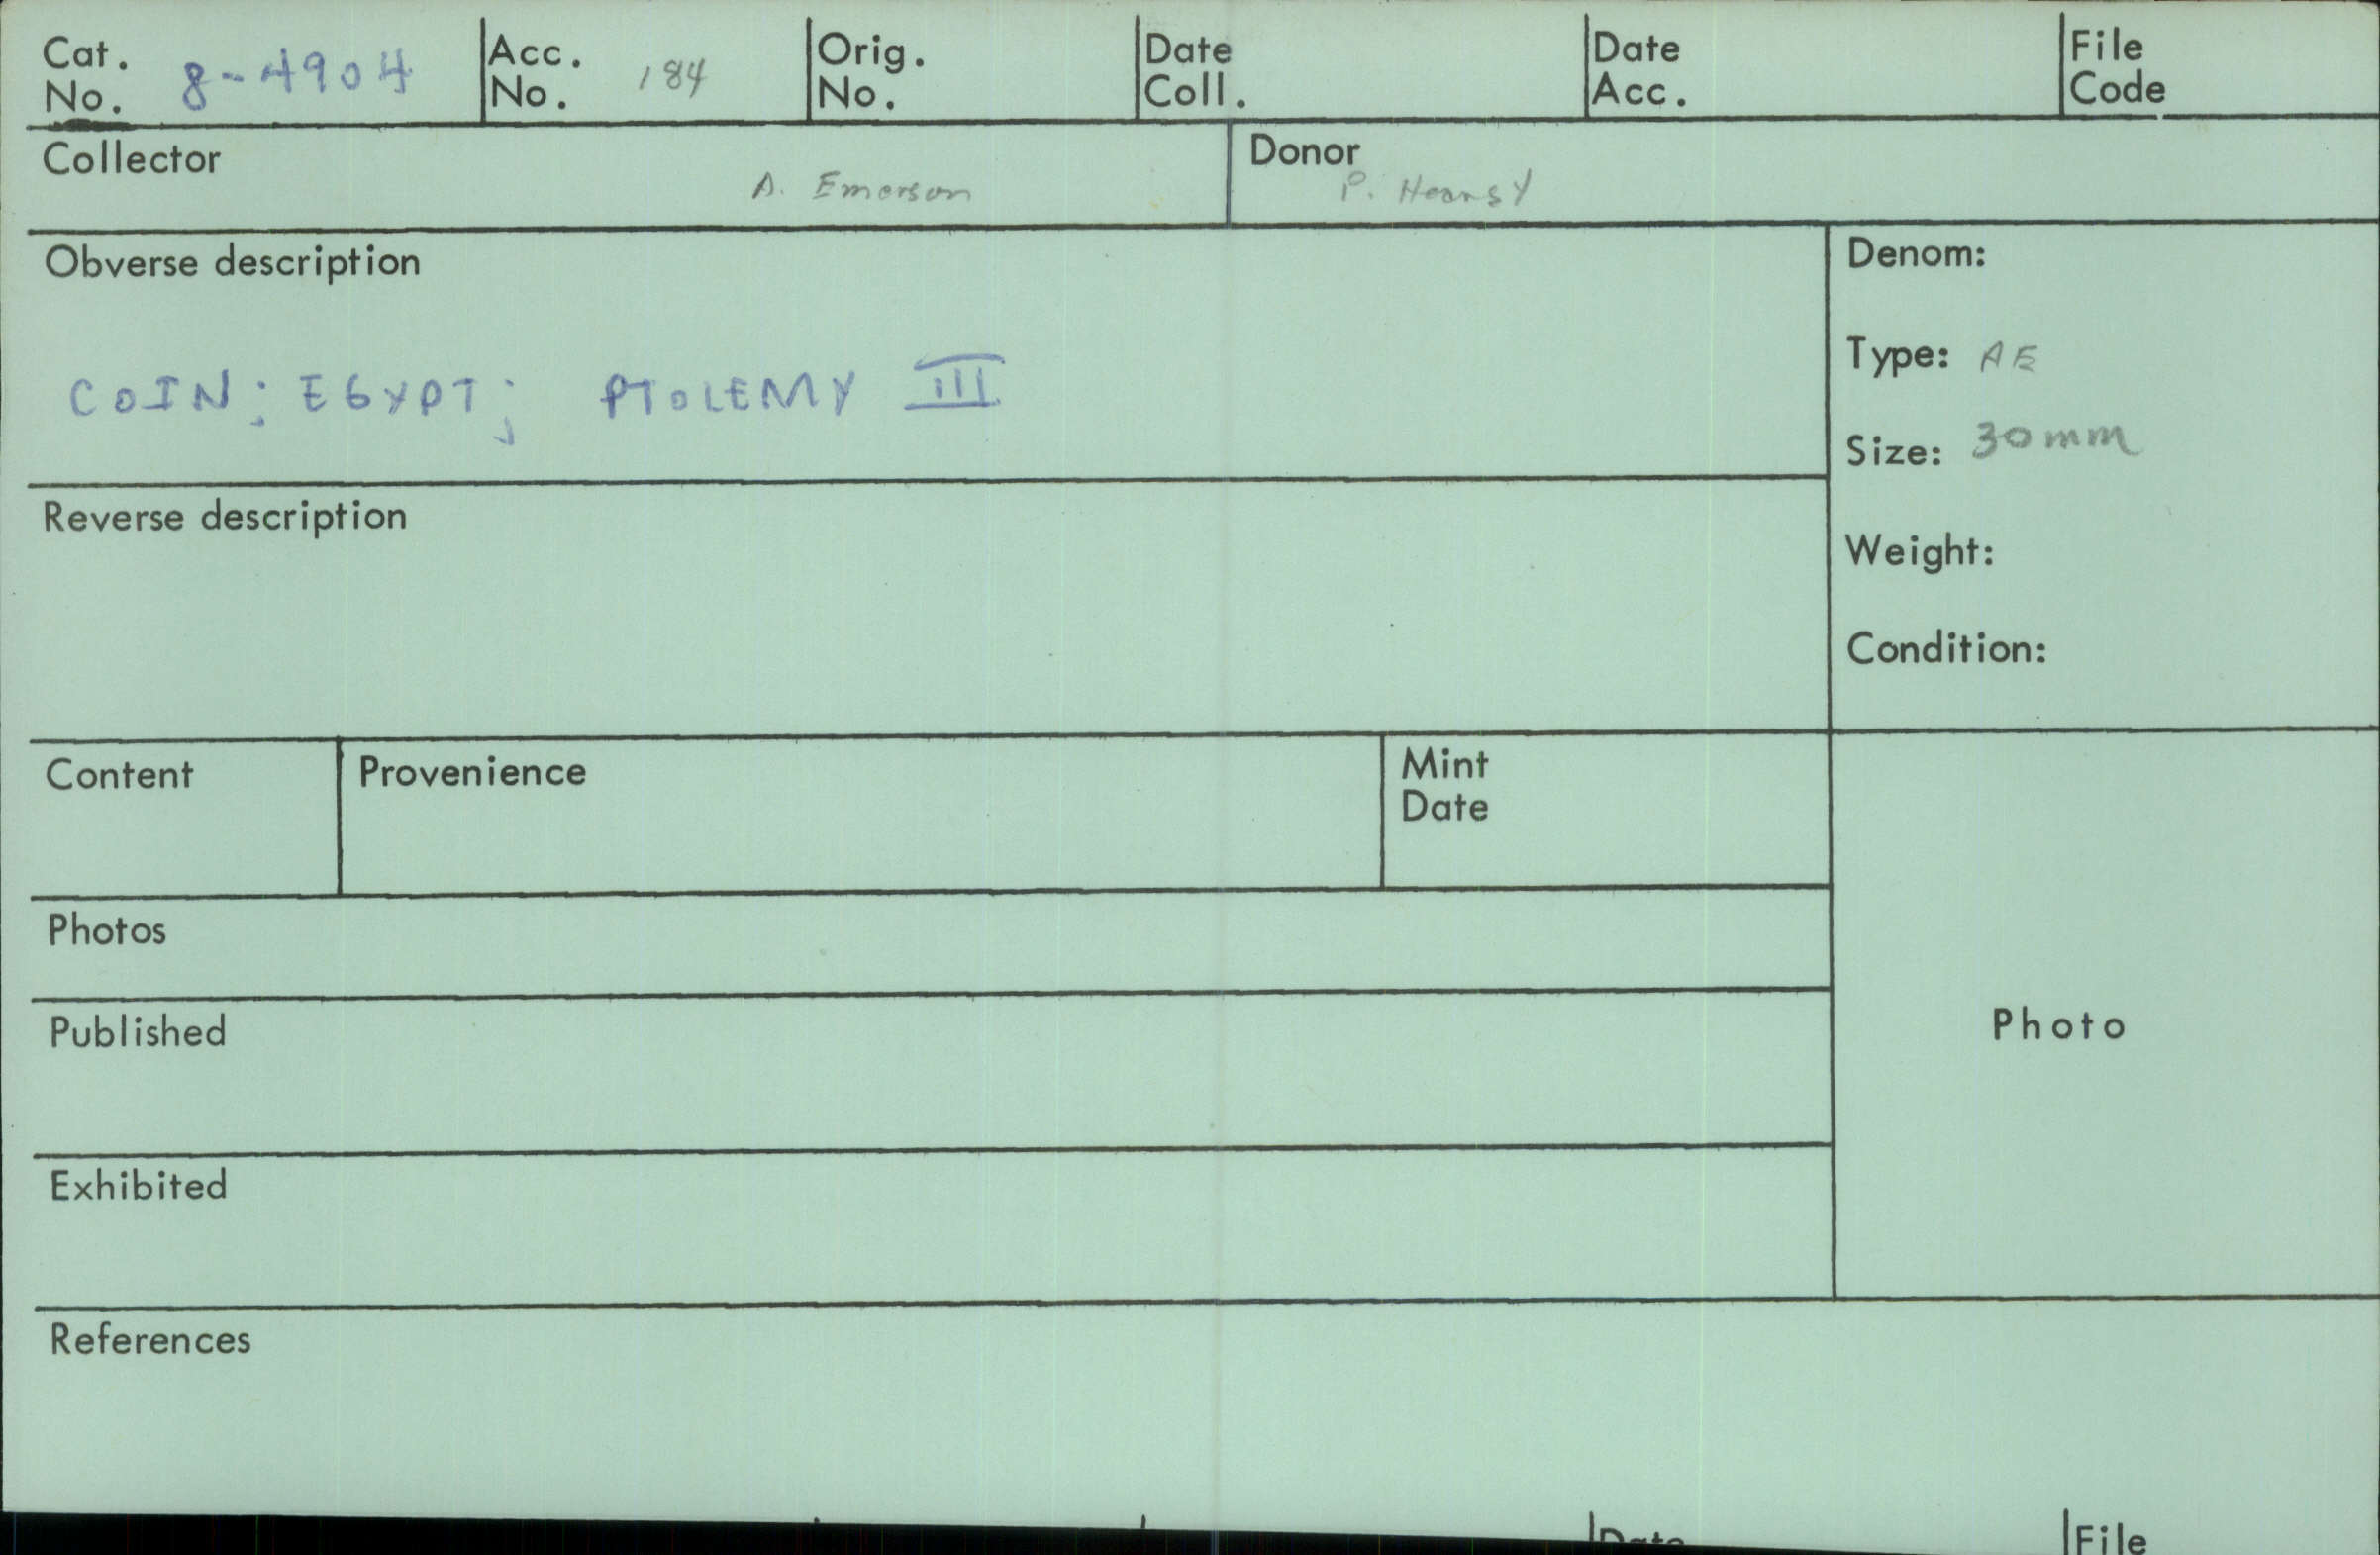 Cat. No. 8-4904 Acc. No. 184 Orig. No. Date Coll. Date Acc. File Code
Collector A. Emerson Donor P. Hearst
Obverse description
COIN; EGYPT; PTOLEMY III
Denom:
Type: AE
Size: 30mm
Reverse description
Weight:
Condition:
Content Provenience Mint Date
Photos
Published
Photo
Exhibited
References
Date File